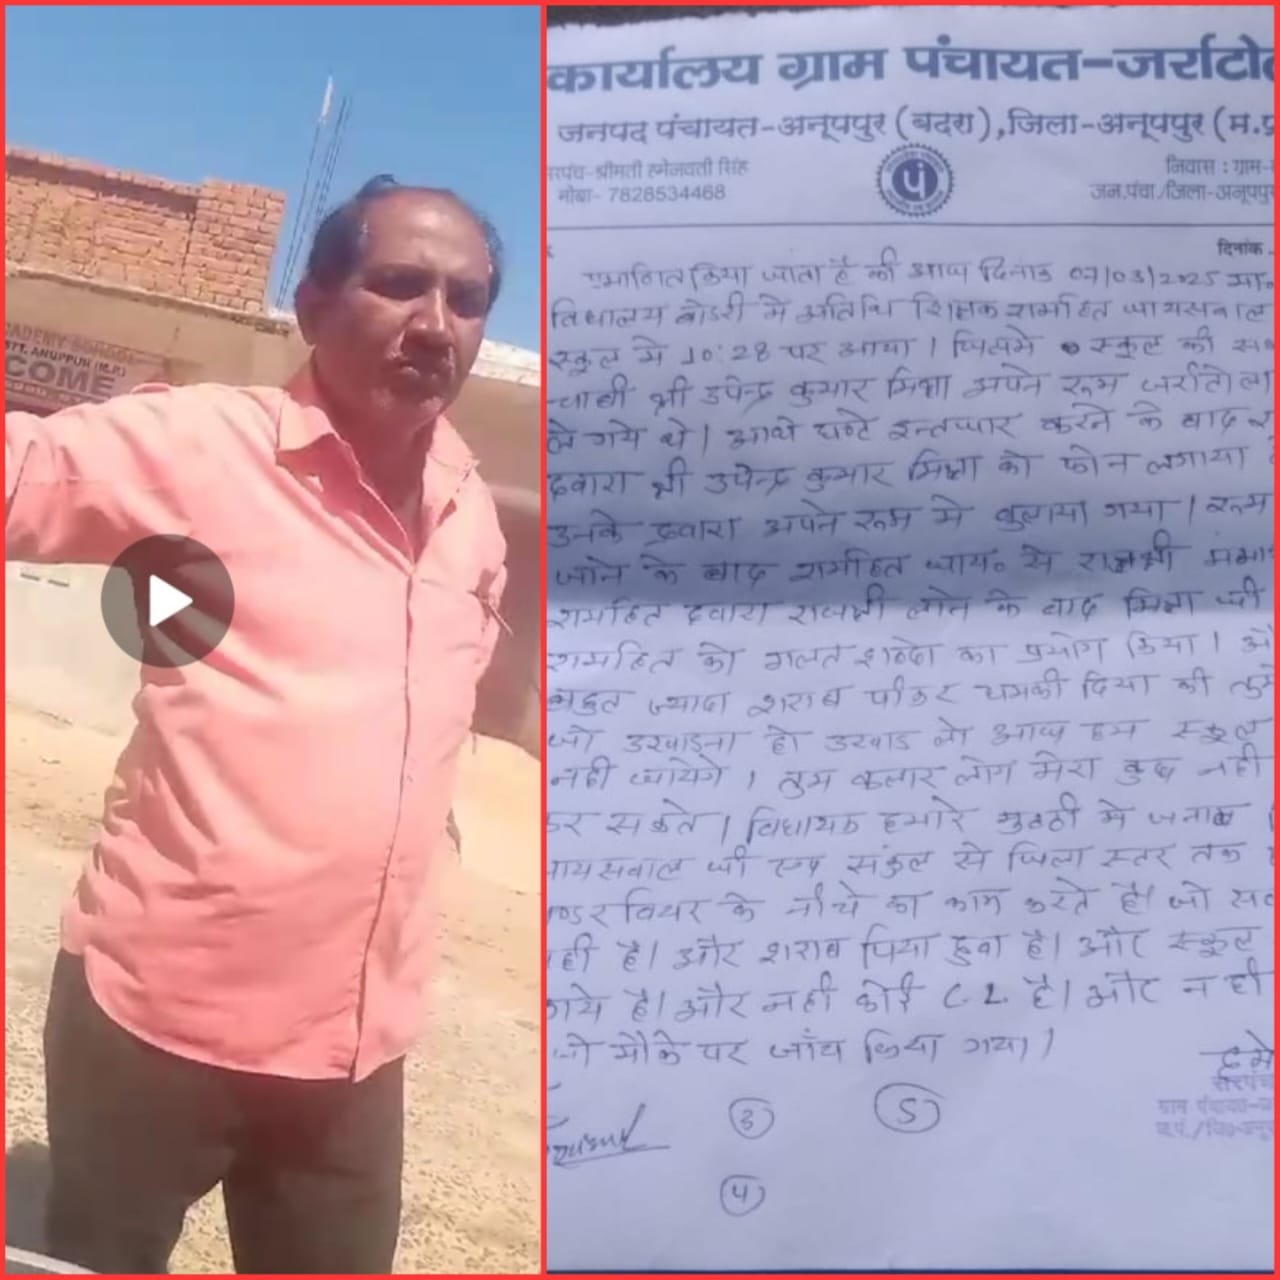 ACADEMY SCHOOL
DISTT. ANUPPUR (M.P.)
COME
कार्यालय ग्राम पंचायत-जर्राटो
जनपद पंचायत-अनूपपुर (बदरा), जिला-अनूपपुर (म.प्र
सरपंच-श्रीमती हमेजवती सिंह
निवास : ग्राम-
मोबा- 7828534468
जन.पंचा./जिला-अनूपपुर
दिनांक
प्रमाणित किया जाता है की आज दिनांक 07/03/2025 मा.
विद्यालय बोडरी मे अतिथि शिक्षक रामहित जायसवाल
स्कूल मे 10:28 पर आया। जिसमे स्कूल की
चाबी श्री उपेन्द्र कुमार मिश्रा अपने रूम जर्राटोला
ले गये थे। आधे घण्टे इन्तजार करने के बाद
दवारा श्री उपेन्द्र कुमार मिश्रा को फोन लगाया
उनके द्रवारा अपने रूम मे बुलाया गया। रूम
जाने के बाद रामहित जाय० से राजश्री
रामहित दवारा राजश्री लाने के बाद मिश्रा जी
रामहित को गलत शब्दो का प्रयोग किया।
बहुत ज्यादा शराब पीकर धमकी दिया की
जो उखाडना हो उखाड लो आज हम स्कूल
नही जायेगे। तुम कलार लोग मेरा कुछ नही
कर सकते। विधायक हमारे मुठठी मे जनाब
जायसवाल जी संकुल से जिला स्तर तक
के नीचे का काम करते है। जो
नही है। और शराब पिया हुवा है। और स्कूल
है। और नही कोई C.L. है। और न ही
जो मौके पर जाँच किया गया।
हमे
सरपंच
ग्राम पंचायत-ज
ज.पं./जिला-अनूप
3
5
4